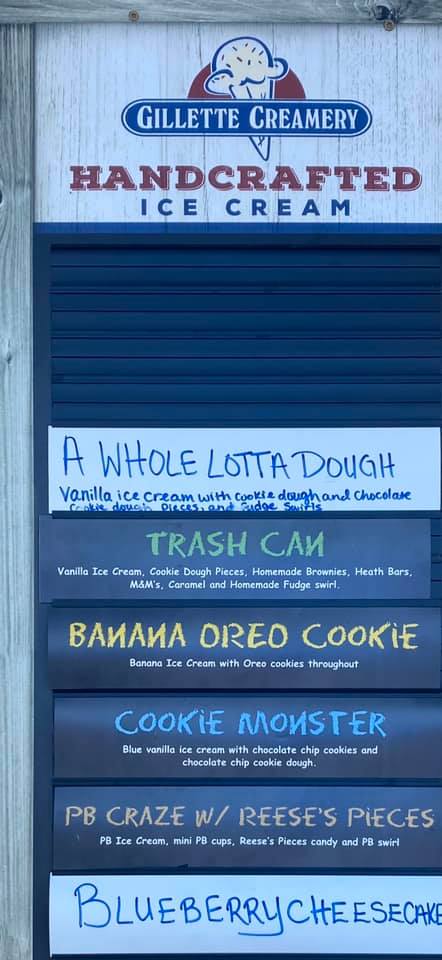 GILLETTE CREAMERY
HANDCRAFTED
ICE CREAM
A WHOLE LOTTA DOUGH
Vanilla ice cream with cookie dough and Chocolate
Cookie dough pieces, and fudge swirls
TRASH CAN
Vanilla Ice Cream, Cookie Dough Pieces, Homemade Brownies, Heath Bars,
M&M's, Caramel and Homemade Fudge swirl.
BANANA OREO COOKIE
Banana Ice Cream with Oreo cookies throughout
COOKIE MONSTER
Blue vanilla ice cream with chocolate chip cookies and
chocolate chip cookie dough.
PB CRAZE W/ REESE'S PIECES
PB Ice Cream, mini PB cups, Reese's Pieces candy and PB swirl
BLUEBERRY CHEESECAKE